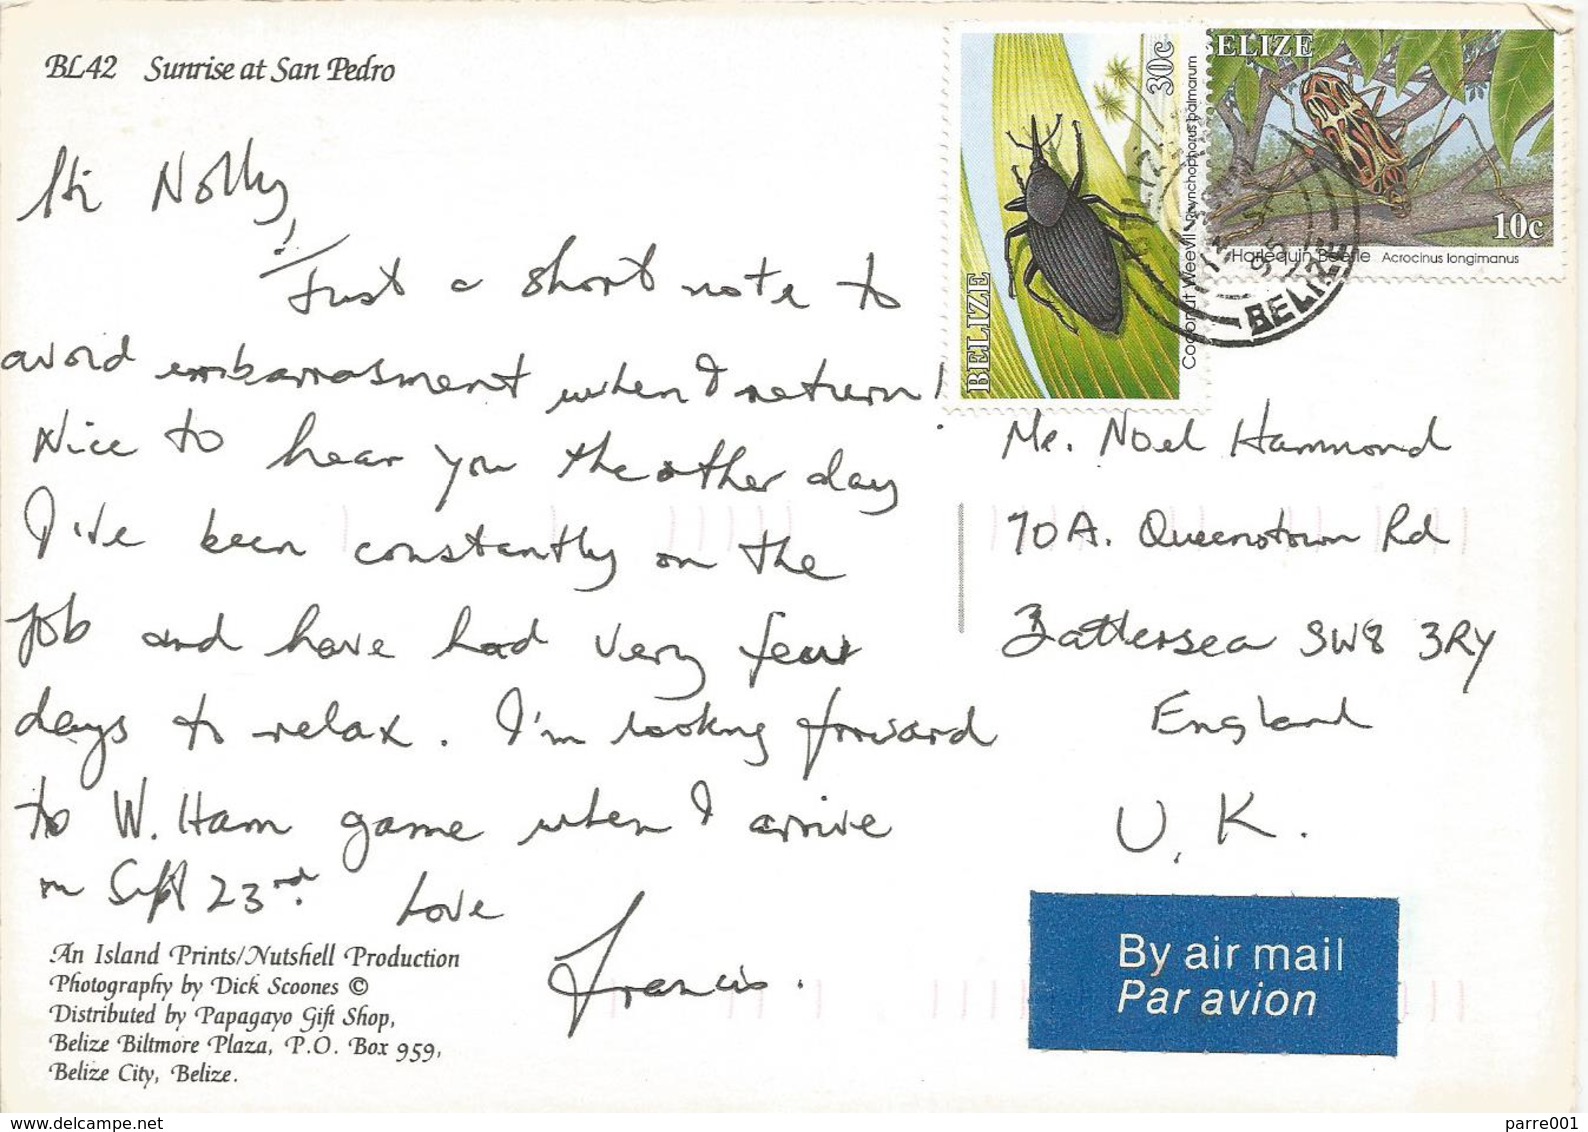 BL42 Sunrise at San Pedro
Hi Nolly,
Just a short note to
avoid embarrasment when I return!
Nice to hear you the other day
I've been constantly on the
job and have had very few
days to relax. I'm looking forward
to W. Ham game when I arrive
on Sept 23rd. Love
Francis.
An Island Prints/Nutshell Production
Photography by Dick Scoones ©
Distributed by Papagayo Gift Shop,
Belize Biltmore Plaza, P.O. Box 959,
Belize City, Belize.
BELIZE
30c
Coconut Weevil Rhynchophorus palmarum
BELIZE
10c
Harlequin Beetle Acrocinus longimanus
BELIZE
Mr. Noel Hammond
70A. Queenstown Rd
Battersea SW8 3RY
England
U.K.
By air mail
Par avion
www.delcampe.net
parre001